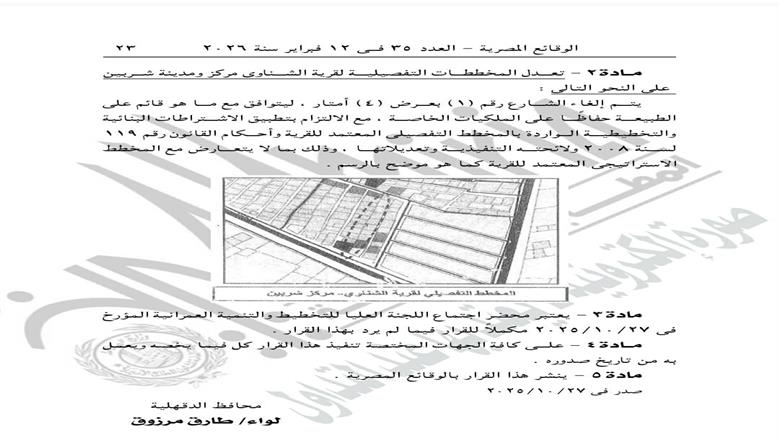 الوقائع المصرية – العدد ٣٥ فى ١٢ فبراير سنة ٢٠٢٦ ٢٣
مادة ٢ – تعدل المخططات التفصيلية لقرية الشناوى مركز ومدينة شربين
على النحو التالى :
يتم إلغاء الشارع رقم (١) بعرض (٤) أمتار ، ليتوافق مع ما هو قائم على
الطبيعة حفاظًا على الملكيات الخاصة ، مع الالتزام بتطبيق الاشتراطات البنائية
والتخطيطية الواردة بالمخطط التفصيلى المعتمد للقرية وأحكام القانون رقم ١١٩
لسنة ٢٠٠٨ ولائحته التنفيذية وتعديلاتها ، وذلك بما لا يتعارض مع المخطط
الاستراتيجى المعتمد للقرية كما هو موضح بالرسم .
المخطط التفصيلى لقرية الشناوى.. مركز شربين
مادة ٣ – يعتبر محضر اجتماع اللجنة العليا للتخطيط والتنمية العمرانية المؤرخ
فى ٢٠٢٥/١٠/٢٧ مكملاً للقرار فيما لم يرد بهذا القرار .
مادة ٤ – على كافة الجهات المختصة تنفيذ هذا القرار كل فيما يخصه ويعمل
به من تاريخ صدوره .
مادة ٥ – ينشر هذا القرار بالوقائع المصرية .
صدر فى ٢٠٢٥/١٠/٢٧
محافظ الدقهلية
لواء/ طارق مرزوق